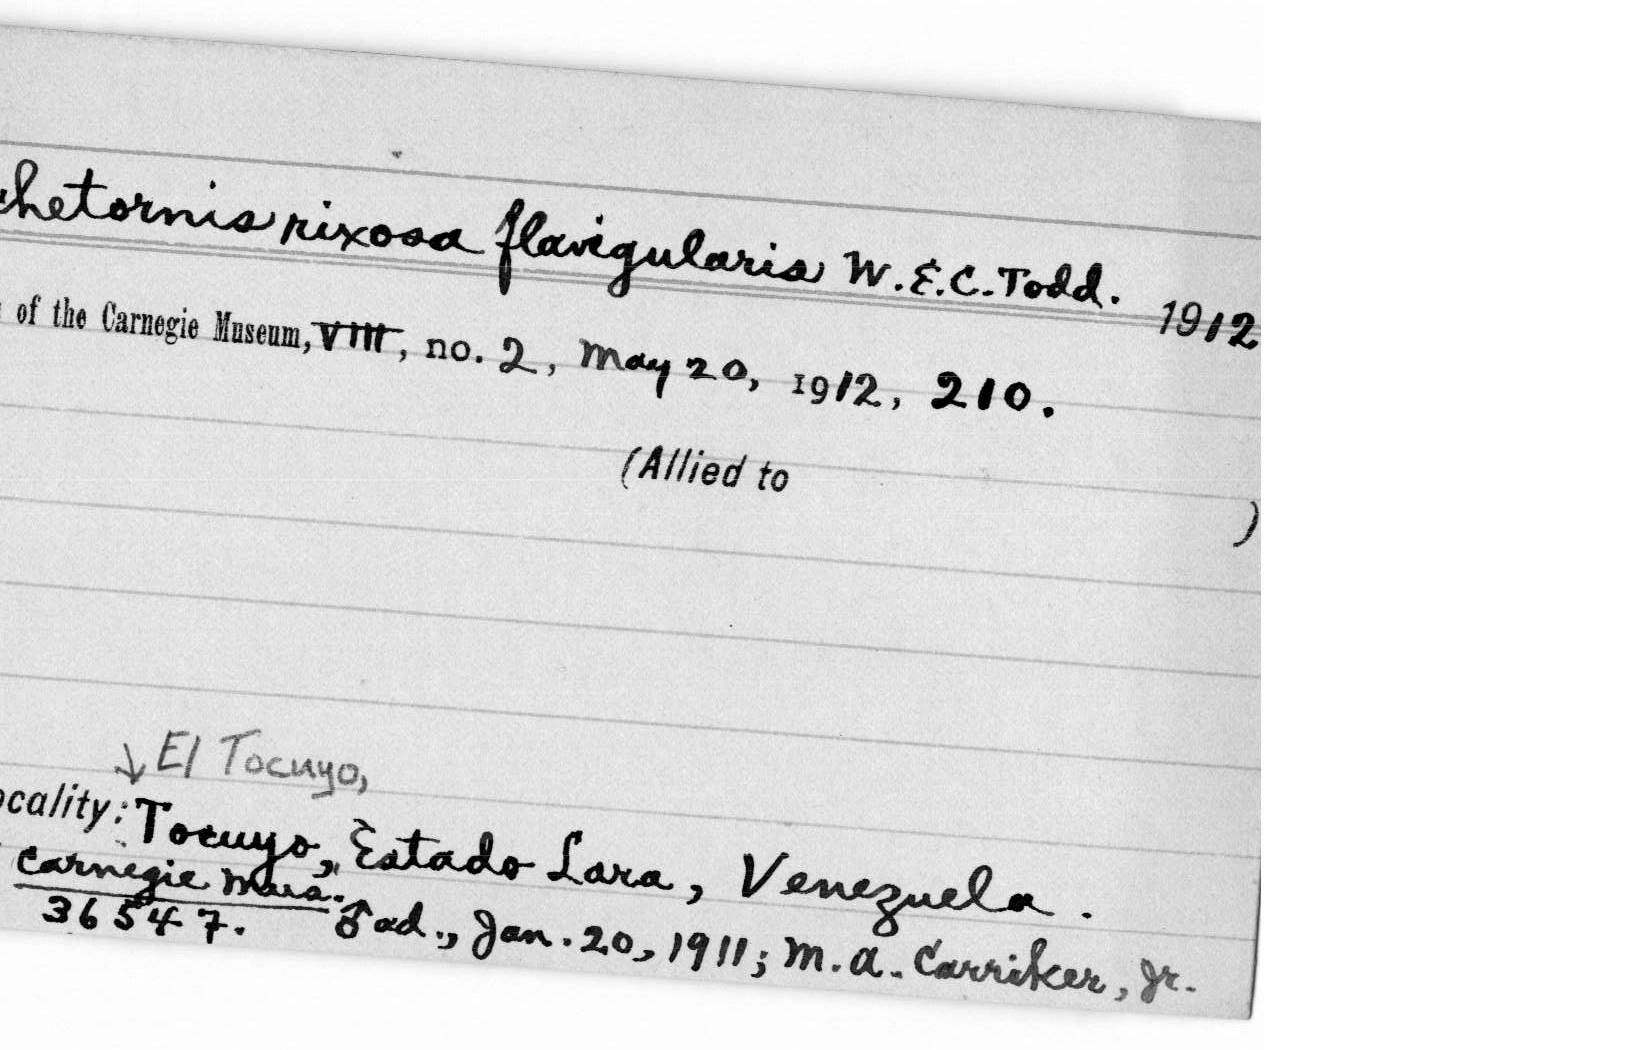 chetornis rixosa flavigularis W.E.C. Todd. 1912
of the Carnegie Museum, VIII, no. 2, May 20, 1912, 210.
(Allied to )
↓ El Tocuyo,
ocality: Tocuyo, Estado Lara, Venezuela.
Carnegie Mus. ♂ ad., Jan. 20, 1911; M.A. Carriker, Jr.
36547.